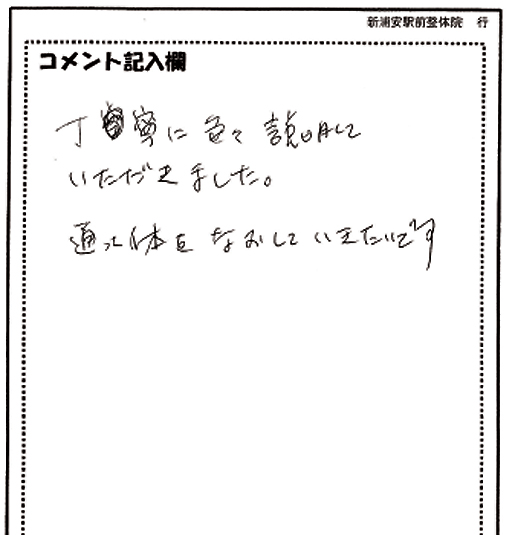 新浦安駅前整体院 行
コメント記入欄
丁寧に色々説明して
いただきました。
通って体をなおしていきたいです